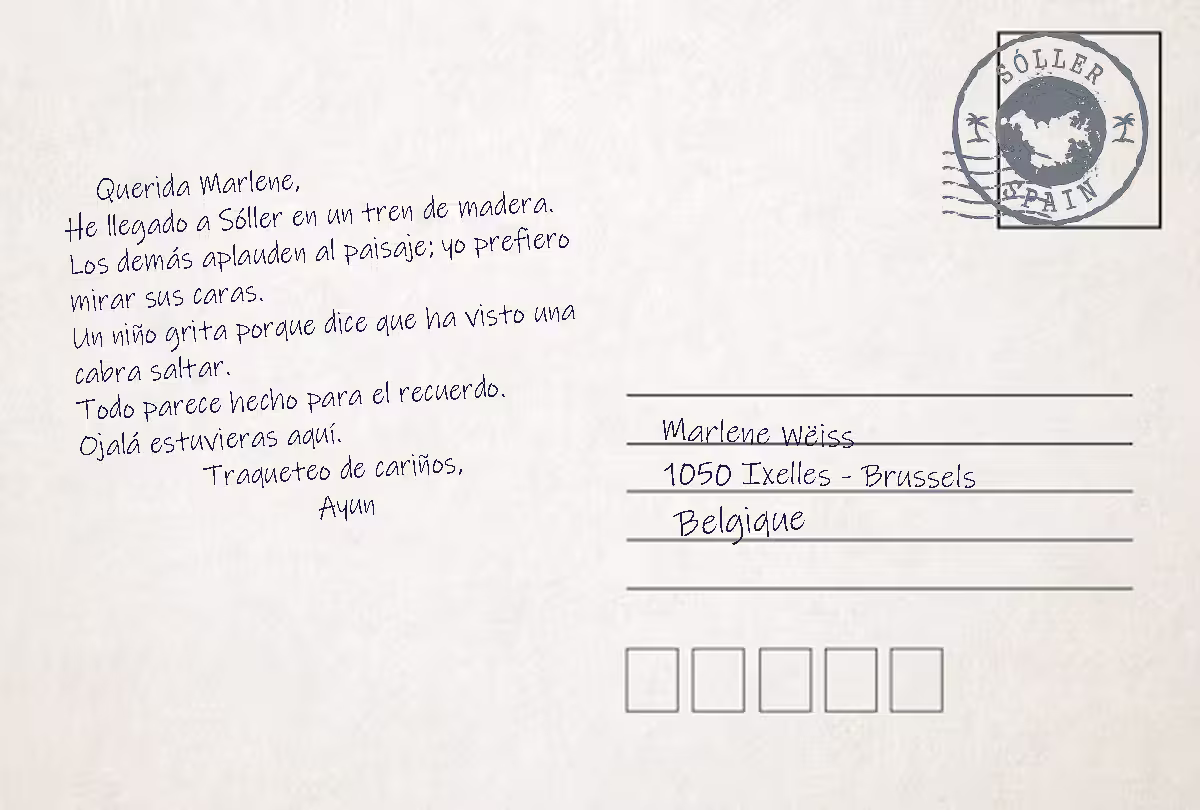 SÓLLER
SPAIN
Querida Marlene,
He llegado a Sóller en un tren de madera.
Los demás aplauden al paisaje; yo prefiero
mirar sus caras.
Un niño grita porque dice que ha visto una
cabra saltar.
Todo parece hecho para el recuerdo.
Ojalá estuvieras aquí.
Traqueteo de cariños,
Ayun
Marlene Wëiss
1050 Ixelles - Brussels
Belgique